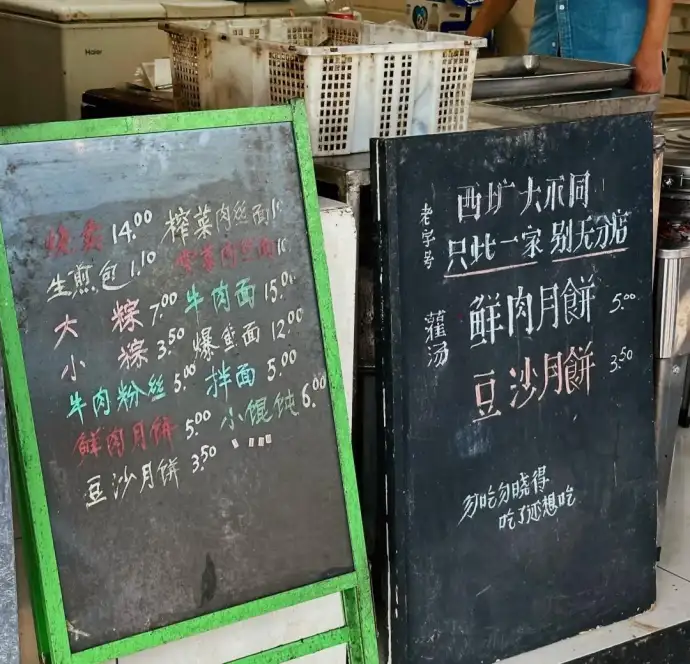 Haier
烧卖 14.00 榨菜肉丝面
生煎包 1.10 菜肉丝面 10
大 粽 7.00 牛肉面 15.00
小 粽 3.50 爆鱼面 12.00
牛肉粉丝 5.00 拌面 5.00
鲜肉月饼 5.00 小馄饨 6.00
豆沙月饼 3.50
老字号
西圹大不同
只此一家 别无分店
灌汤
鲜肉月餅 5.00
豆沙月餅 3.50
勿吃勿晓得
吃了还想吃